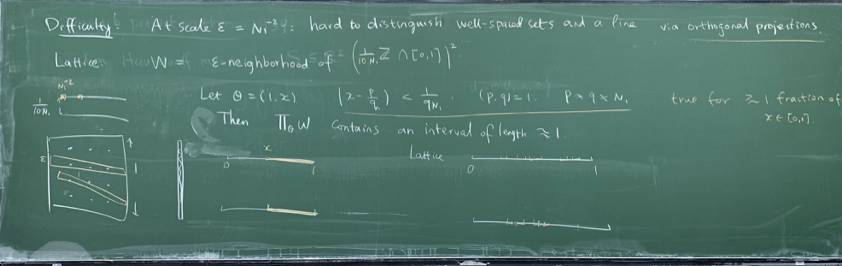 Difficulty: At scale ε = N₁⁻²: hard to distinguish well-spaced sets and a line via orthogonal projections.
Lattice W = ε-neighborhood of (1/10N₁ ℤ ∩ [0,1])²
Let θ = (1, x) |x - p/q| < 1/qN₁. (p,q)=1. p ≈ q ≈ N₁ true for ≳ 1 fraction of x ∈ [0,1].
Then Π_θ W contains an interval of length ≈ 1.
N₁⁻²
1/10N₁
ε
1
x
0 1
Lattice
0 1